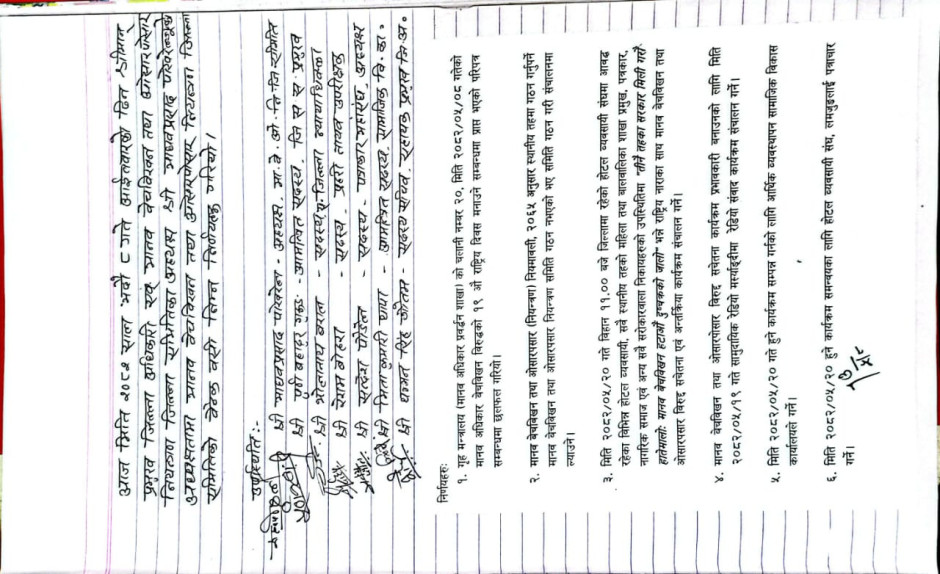 आज मिति २०८२ साल भदौ ८ गते आईतवारका दिन श्रीमान
प्रमुख जिल्ला अधिकारी एवं मानव वेचविखन तथा ओसारपोसार
नियन्त्रण जिल्ला समितिका अध्यक्ष श्री माधवप्रसाद पोखरेलज्यूको
अध्यक्षतामा मानव वेचविखन तथा ओसारपोसार नियन्त्रण जिल्ला
समितिको बैठक बसी निम्न निर्णयहरु गरियो।
उपस्थिति :-
श्री माधवप्रसाद पोखरेल - अध्यक्ष, मा. वे. ओ. नि. जि. समिति
श्री पूर्ण बहादुर गुरुङ - आमन्त्रित सदस्य, जि स स प्रमुख
श्री भोलानाथ बराल - सदस्य, जिल्ला न्यायाधिवक्ता
श्री वेगम बोहरा - सदस्य, प्रहरी नायव उपरीक्षक
श्री सन्देश पौडेल - सदस्य, पत्रकार महासंघ, अध्यक्ष
श्री मिनाकुमारी थापा - आमन्त्रित सदस्य, सामाजिक वि. का.
श्री यामन सिंह - सदस्य सचिव, सहायक प्रमुख जि. अ.
निर्णयहरु:
१. गृह मन्त्रालय (मानव अधिकार प्रवर्द्धन शाखा) को चलानी नम्बर २०, मिति २०८२/०५/०८ गतेको
मानव अधिकार बेचबिखन विरुद्धको १९ औं राष्ट्रिय दिवस मनाउने सम्बन्धमा प्राप्त भएको परिपत्र
सम्बन्धमा छलफल गरियो।
२. मानव बेचबिखन तथा ओसारपसार (नियन्त्रण) नियमावली, २०६५ अनुसार स्थानीय तहमा गठन गर्नुपर्ने
मानव बेचबिखन तथा ओसारपसार नियन्त्रण समिति गठन नभएको भए समिति गठन गरी संचालनमा
ल्याउने।
३. मिति २०८२/०५/२० गते विहान ११.०० बजे जिल्लामा रहेको होटल व्यवसायी संघमा आवद्ध
रहेका विभिन्न होटल व्यवसायी, सबै स्थानीय तहको महिला तथा बालबालिका शाखा प्रमुख, पत्रकार,
नागरिक समाज एवं अन्य सबै सरोकारवाला निकायहरुको उपस्थितिमा "तीनै तहका सरकार मिली गरौं
हातेमालो: मानव बेचबिखन हटाऔं दुष्चक्रको जालो" भन्ने राष्ट्रिय नाराका साथ मानव बेचबिखन तथा
ओसारपसार विरुद्ध सचेतना एवं अन्तर्क्रिया कार्यक्रम संचालन गर्ने।
४. मानव बेचबिखन तथा ओसारपोसार विरुद्ध सचेतना कार्यक्रम प्रभावकारी बनाउनको लागि मिति
२०८२/०५/१९ गते सामुदायिक रेडियो मर्स्याङ्दीमा रेडियो संवाद कार्यक्रम संचालन गर्ने।
५. मिति २०८२/०५/२० गते हुने कार्यक्रम सम्पन्न गर्नको लागि आर्थिक व्यवस्थापन सामाजिक विकास
कार्यालयले गर्ने।
६. मिति २०८२/०५/२० हुने कार्यक्रम समन्वयका लागि होटल व्यवसायी संघ, लमजुङलाई पत्राचार
गर्ने।